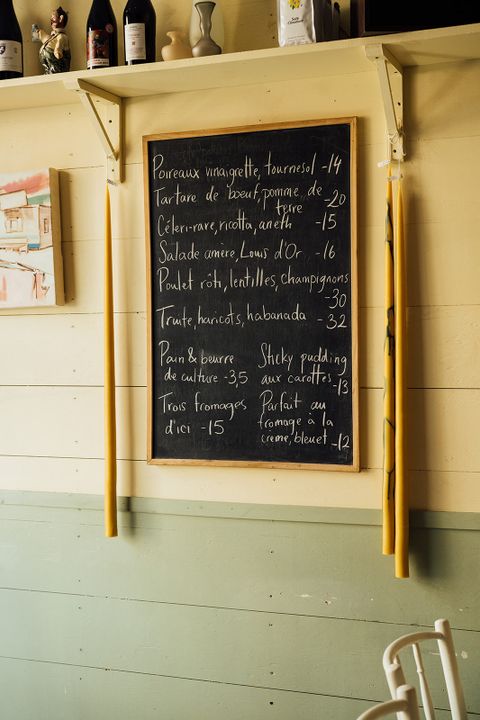 Poireaux vinaigrette, tournesol -14
Tartare de bœuf, pomme de
terre -20
Céleri-rave, ricotta, aneth -15
Salade amère, Louis d'Or -16
Poulet rôti, lentilles, champignons
-30
Truite, haricots, habanada -32
Pain & beurre
de culture -3,5
Trois fromages
d'ici -15
Sticky pudding
aux carottes -13
Parfait au
fromage à la
crème, bleuet -12